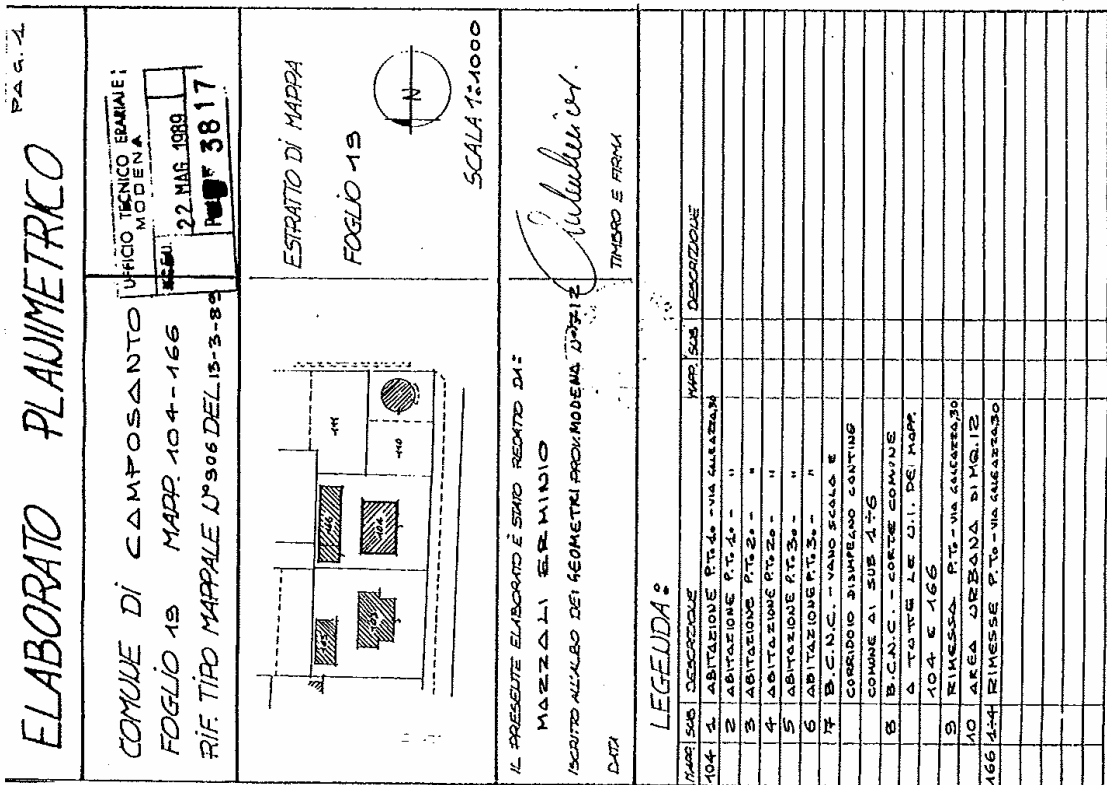 PAG. 1
ELABORATO PLANIMETRICO
COMUNE DI CAMPOSANTO
FOGLIO 19 MAPP. 104-166
RIF. TIPO MAPPALE N°306 DEL 13-3-89
UFFICIO TECNICO ERARIALE
MODENA
22 MAG 1989
3817
ESTRATTO DI MAPPA
FOGLIO 19
N
SCALA 1:1000
111
110
166
104
103
IL PRESENTE ELABORATO È STATO REDATTO DA:
MAZZALI ERMINIO
ISCRITTO ALL'ALBO DEI GEOMETRI PROV. MODENA N°712
DATA
TIMBRO E FIRMA
LEGENDA:
MAPP. SUB DESCRIZIONE MAPP. SUB DESCRIZIONE
104 1 ABITAZIONE P.T. 1o - VIA GALEAZZA,30
2 ABITAZIONE P.T. 1o - "
3 ABITAZIONE P.T. 2o - "
4 ABITAZIONE P.T. 2o - "
5 ABITAZIONE P.T. 3o - "
6 ABITAZIONE P.T. 3o - "
7 B.C.N.C. - VANO SCALA E
CORRIDOIO DISIMPEGNO CANTINE
COMUNE AI SUB 1÷6
8 B.C.N.C. - CORTE COMUNE
A TUTTE LE U.I. DEI MAPP.
104 E 166
9 RIMESSA P.T. - VIA GALEAZZA,30
10 AREA URBANA DI MQ. 12
166 1÷4 RIMESSE P.T. - VIA GALEAZZA,30